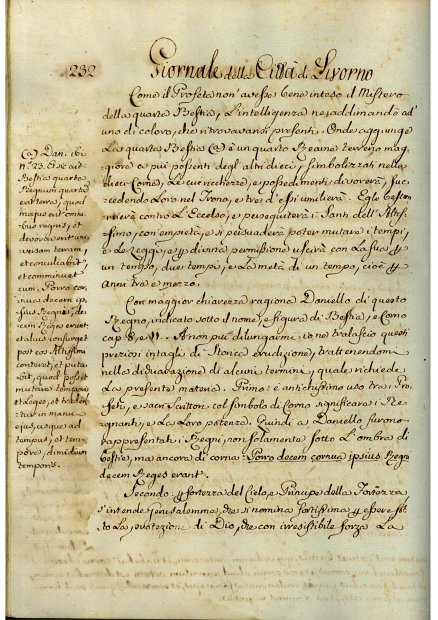 232
Giornale della Città di Livorno
Come il Profeta non' avesse bene inteso il Mistero
della quarta Bestia, L'intelligenza ne addimandò ad
uno di coloro, che ritrovavansi presenti. Onde aggiunge
La quarta Bestia (a) è un quarto Reame terreno mag
giore a più possenti degl'altri dieci, simbolezzati nelle
dieci Corna, Le cui richezze, e possedimenti divorerà, suc
cedendo Loro nel Trono, e tre d'essi umilierà. Egli bestem
mierà contro L'Eccelso, e perseguiterà i Santi dell'Altis
simo, con empietà, e si persuaderà poter mutare i tempi,
e Le Leggi, e divina permissione uscirà con La sua
un tempo, due tempi, e La metà di un tempo, cioè
Anni tre e mezzo.
Con maggior chiarezza ragiona Daniello di questo
Regno, indicato sotto il nome, e figura di Bestia, e Corno
cap. 8, e 11. A non più dilungarmi io ne tralascio questi
preziosi intagli di Storica erudizione, trattenendomi
nella diciarazione di alcuni termini, quale richiede
La presente materia. Primo: è antichissimo uso tra' Pro
feti, e sacri Scrittori col simbolo di Corno significare i Re
gnanti, e La Loro potenza. Quindi a Daniello furono
rappresentati i Regni, non solamente sotto L'ombra di
bestie, ma ancora di corna: Porro decem cornua ipsius Regni
decem Reges erant.
Secondo: fortezza del Cielo, e Principe della Fortezza
s'intende Jerusalemme, che si nomina fortissima essere sot
to La protezione di Dio, che con irresistibile forza La
(a) Dan. ibi
n.º 23. Et sic ait
Bestia quarta
Regnum quartum
erit terra, quod
majus erit omni
bus regnis, et
devorabit uni
versam terram,
et conculcabit,
et comminuet
eam. Porro cor
nua decem ip
sius Regni, de
cem Reges erunt:
et alius consurget
post eos Altissimi
conteret, et puta
bit, quod possit
mutare tempora
et Leges, et trade
tur in manu
ejus, usque ad
tempus, et tem
pora, dimidium
temporis.